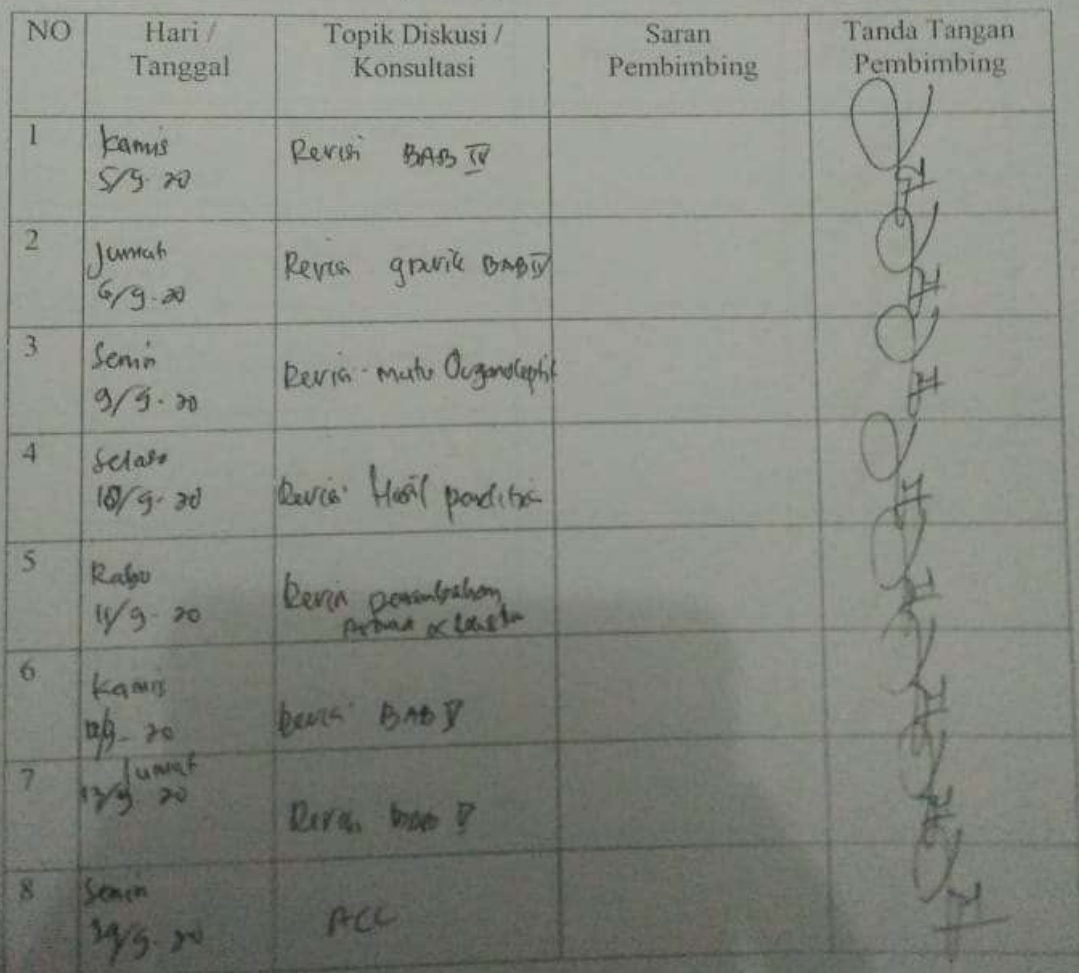 NO
Hari /
Tanggal
Topik Diskusi /
Konsultasi
Saran
Pembimbing
Tanda Tangan
Pembimbing
1
Kamis
5/9-20
Revisi BAB IV
2
Jumat
6/9-20
Revisi gravik BAB IV
3
Senin
9/9-20
Revisi mutu Organoleptik
4
Selasa
10/9-20
Revisi Hasil
5
Rabu
11/9-20
Revisi
6
Kamis
12/9-20
Revisi BAB V
7
Jumat
13/9 20
Revisi bab V
8
Senin
/9-20
ACC